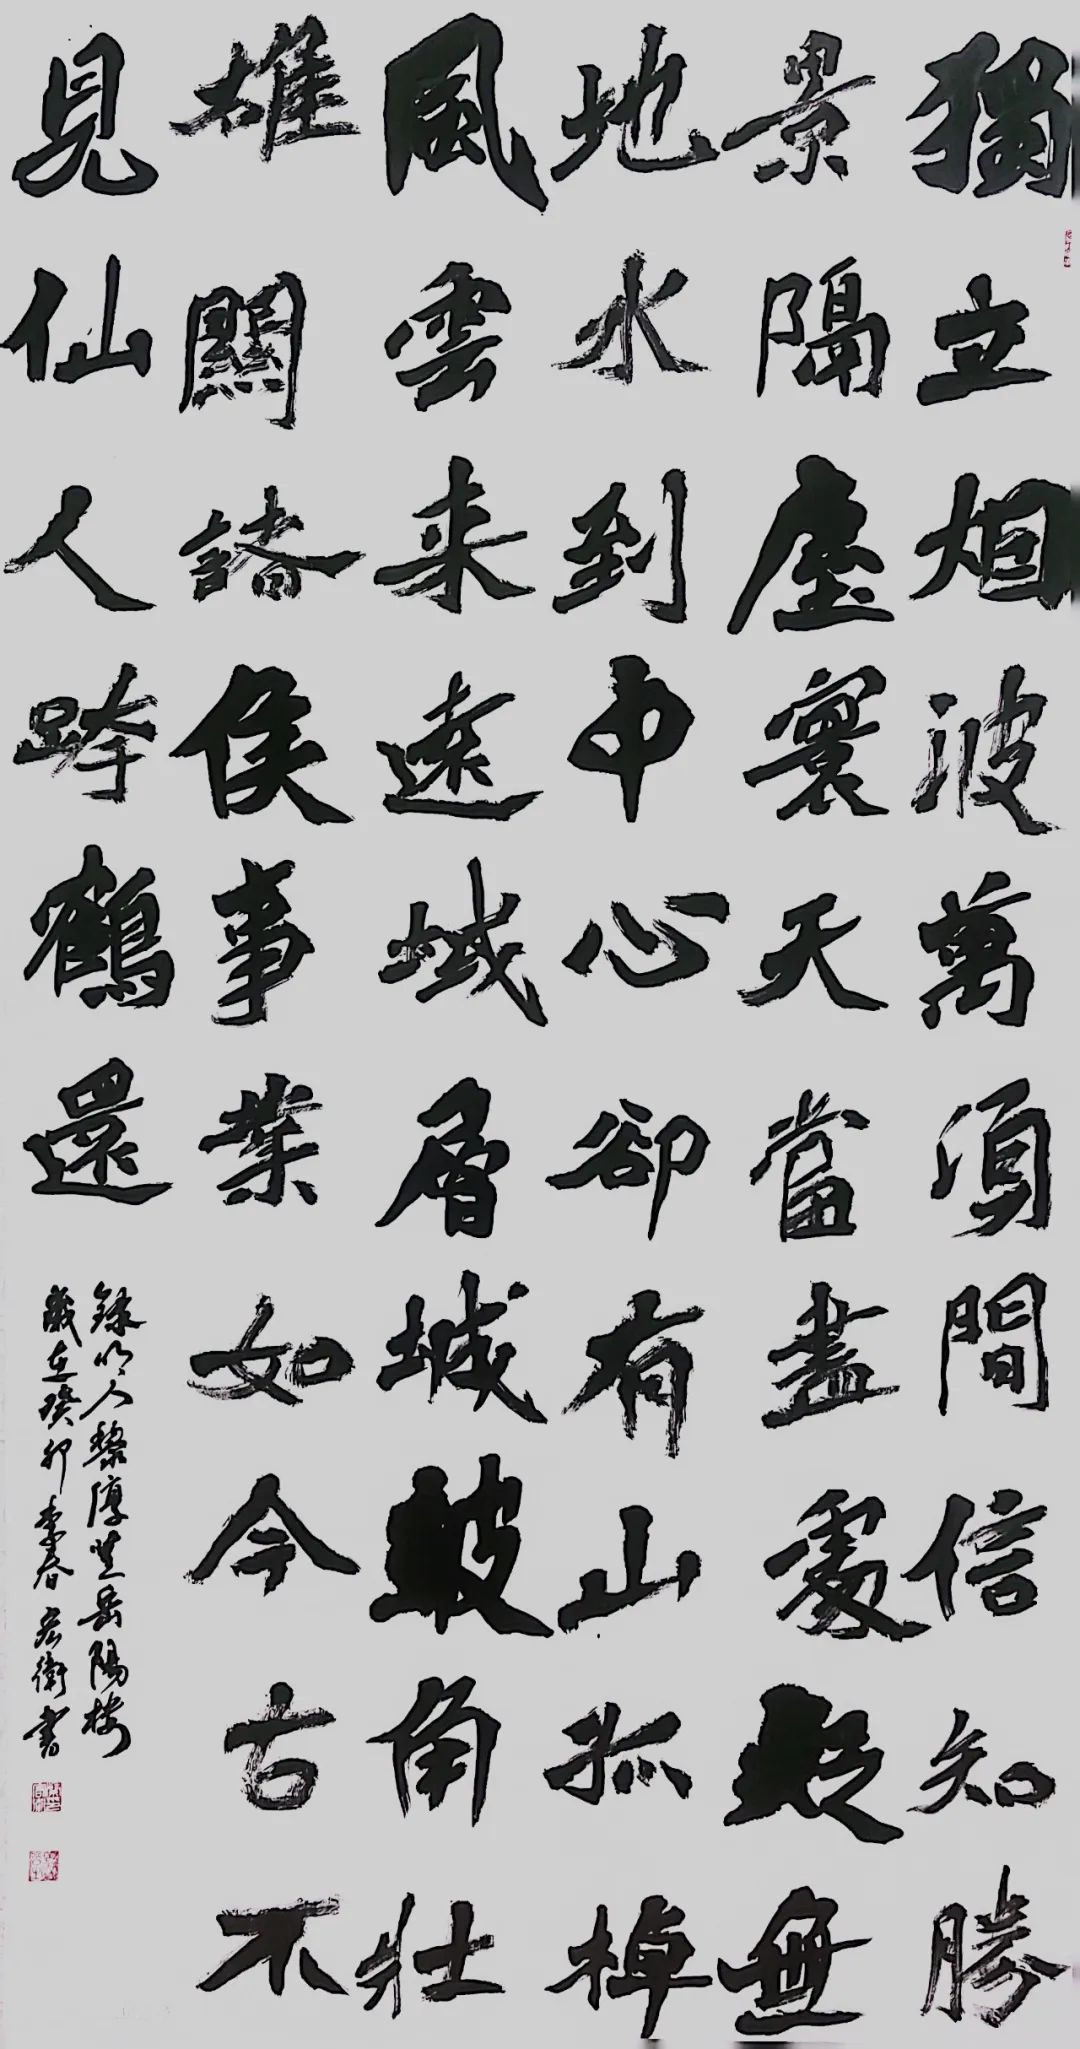 獨立烟波萬頃間信知勝
景隔塵寰天當盡處疑無
地水到中心卻有山孤棹
風雲来遠域層城鼓角壯
雄關諸侯事業如今古不
見仙人跨鶴還
錄明人黎淳登岳陽樓
歲在癸卯季春宏衛書